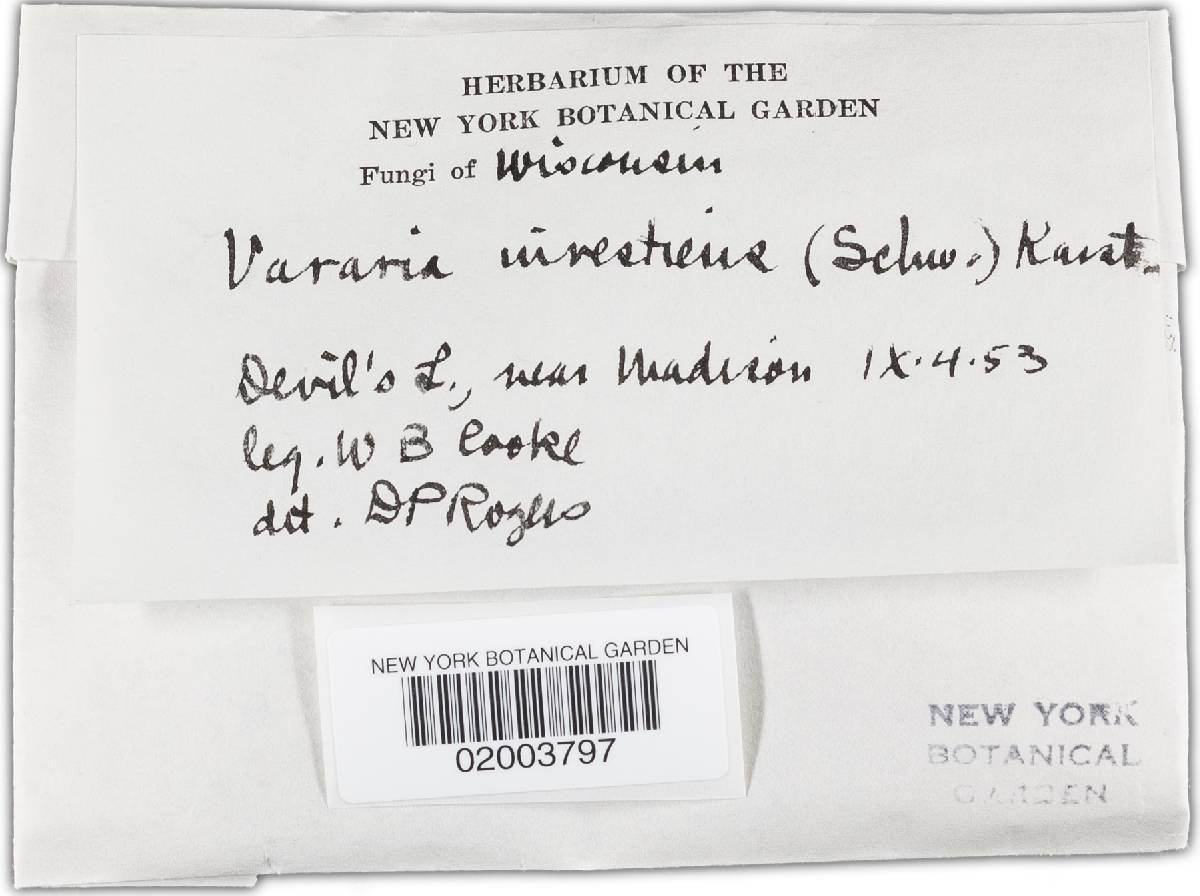 HERBARIUM OF THE
NEW YORK BOTANICAL GARDEN
Fungi of Wisconsin
Vararia investiens (Schw.) Karst.
Devil's L., near Madison IX.4.53
leg. W B Cooke
det. D P Rogers
NEW YORK BOTANICAL GARDEN
02003797
NEW YORK
BOTANICAL
GARDEN